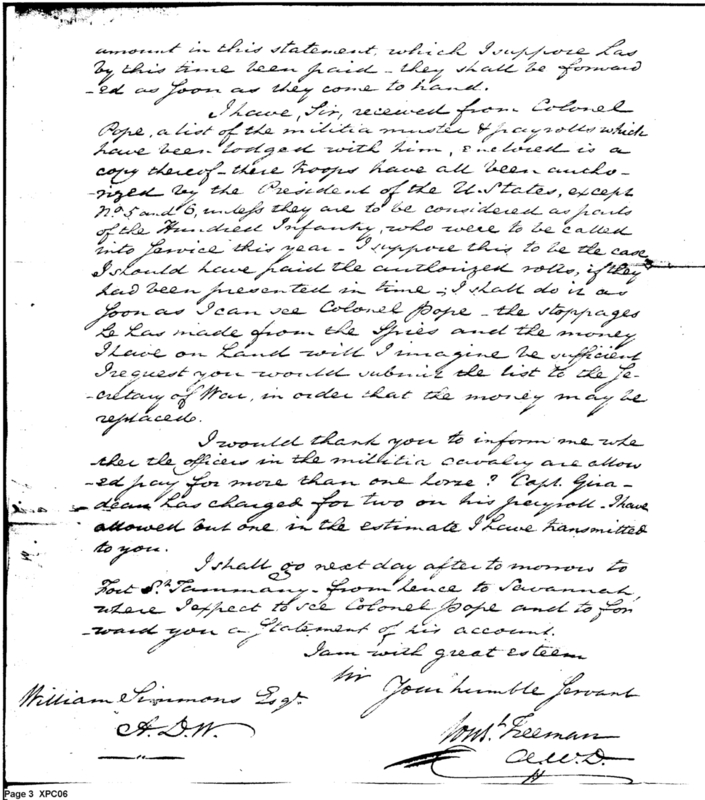 amount in this statement, which I suppose has
by this time been paid - they shall be forward
-ed as soon as they come to hand.
I have, Sir, received from Colonel
Pope, a list of the militia muster & payrolls which
have been lodged with him, enclosed is a
copy thereof - these troops have all been autho-
-rized by the President of the U. States, except
No. 5 and 6, unless they are to be considered as parts
of the Hundred Infantry, who were to be called
into Service this year - I suppose this to be the case
I should have paid the authorized rolls, if they
had been presented in time; I shall do it as
soon as I can see Colonel Pope - the stoppages
he has made from the Spies and the money
I have on hand will I imagine be sufficient
I request you would submit the list to the Se-
-cretary of War, in order that the money may be
replaced.
I would thank you to inform me whe
ther the officers in the militia cavalry are allow
-ed pay for more than one horse? Capt. Gira-
-deau has charged for two on his payroll - I have
allowed but one in the estimate I have transmitted
to you.
I shall go next day after to morrow to
Fort St. Tammany - from hence to Savannah,
where I expect to see Colonel Pope and to for
-ward you a Statement of his account.
I am with great esteem
Sir
Your humble Servant
William Simmons Esqr.
A.D.W.
Const. Freeman
A.W.D.
Page 3 XPC06